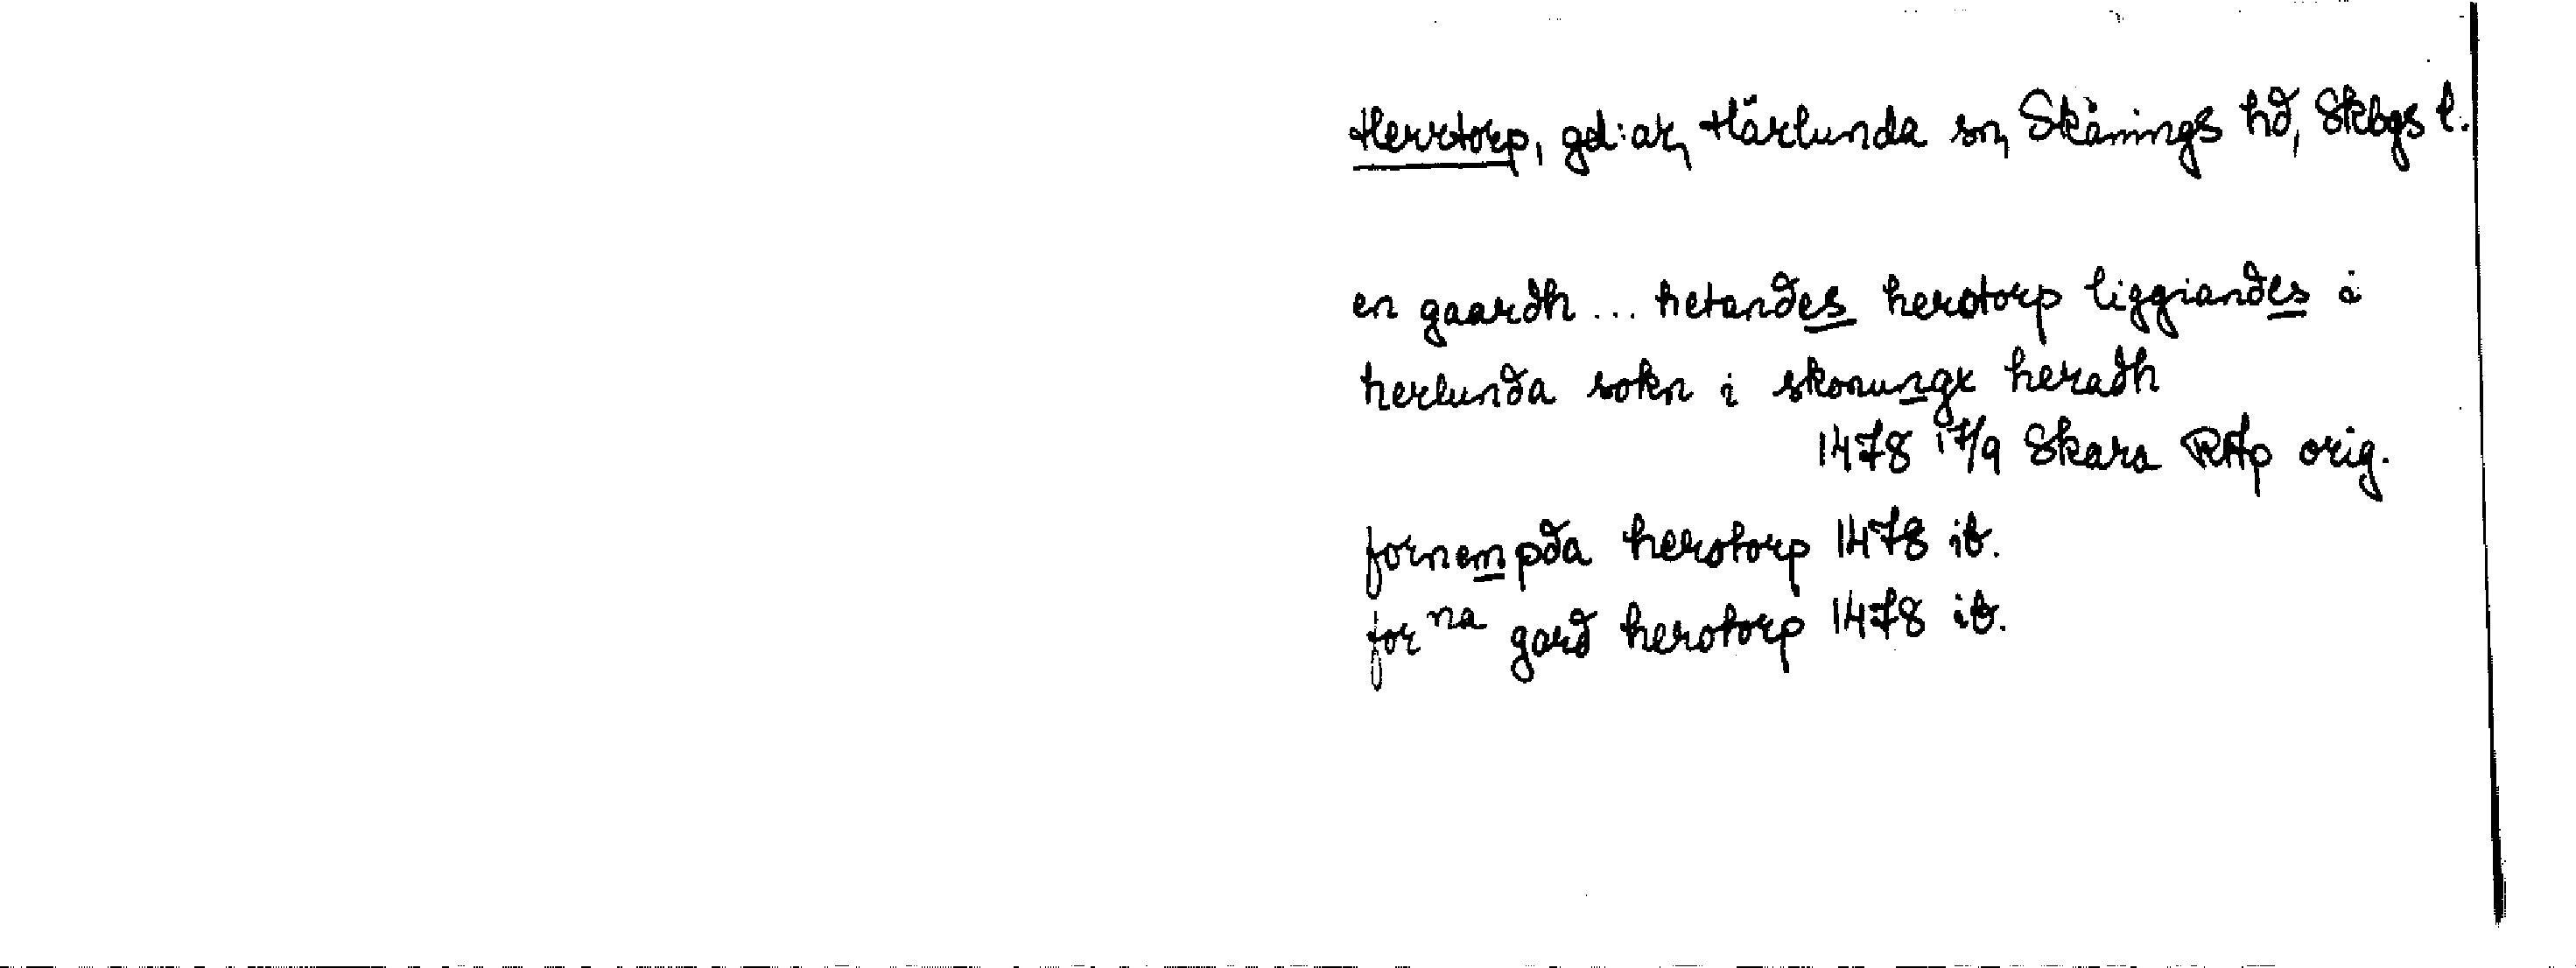 Herrtorp, gd:ar, Härlunda sn, Skånings hd, Skbgs l.
en gaardh ... hetandes herotorp liggiandes i
herlunda sokn i skonungx heradh
1478 17/9 Skara RAp orig.
fornempda herotorp 1478 ib.
for na gard herotorp 1478 ib.